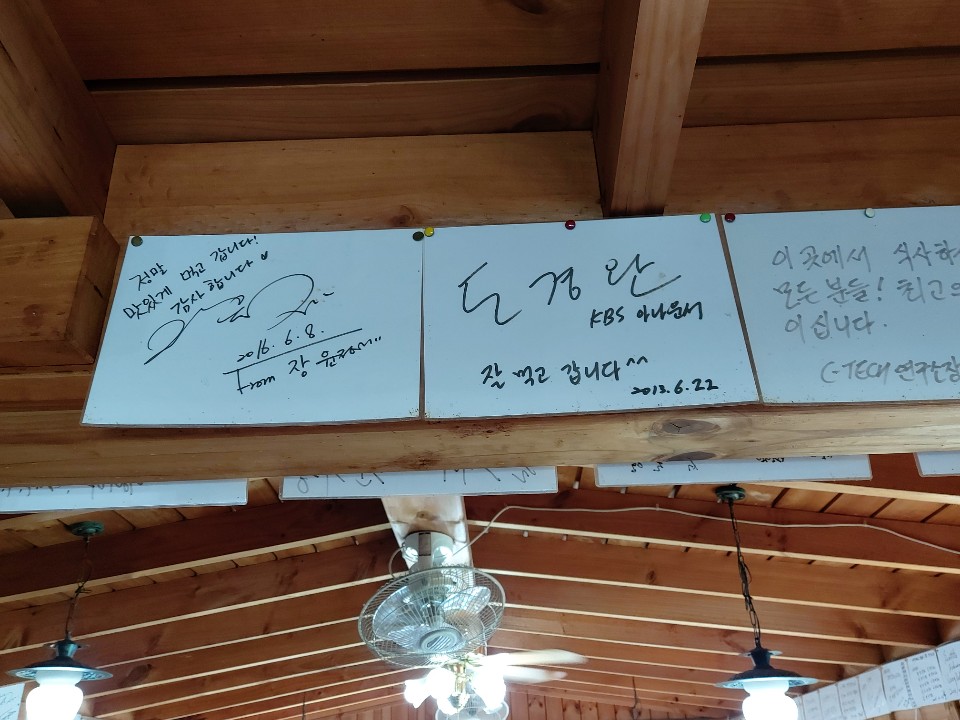 정말
맛있게 먹고 갑니다!
감사합니다
2016. 6. 8.
From 장윤정
도경완
KBS 아나운서
잘 먹고 갑니다^^
2013. 6. 22
이 곳에서 식사하
모든 분들! 최고의
이십니다.
C-TECH 연구소장